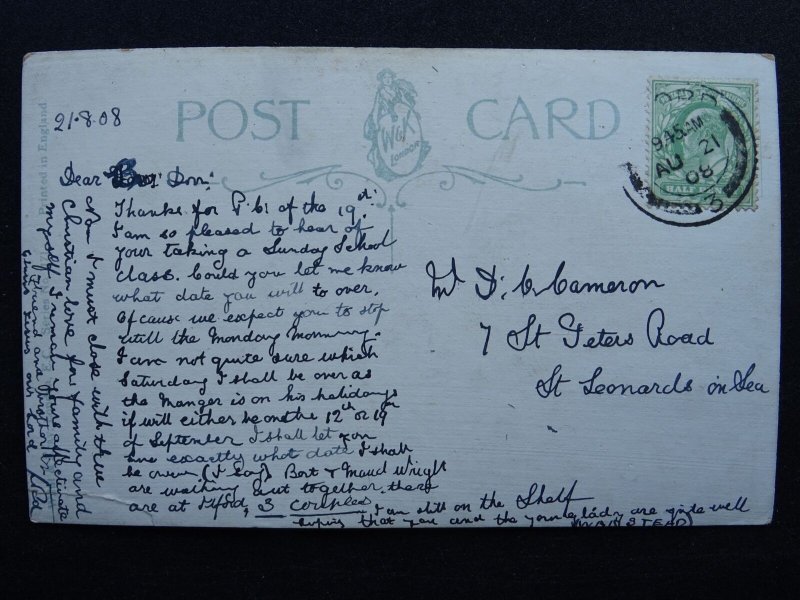 POST CARD
W&K
LONDON
Printed in England
945 AM
AU 21
08
3
HALF
21.8.08
Dear Don.
Thanks for P.C. of the 19th
I am so pleased to hear of
your taking a Sunday School
class. Could you let me know
what date you will to over,
Of cause we expect you to stop
untill the Monday Morning.
I am not quite sure which
Saturday I shall be over as
the Manger is on his halidays
if will either be on the 12th or 19th
of September I shall let you
me exactly what date I shall
be over (I say) Bert & Maud Wright
are walking out together, thats
are at Ilford, 3 couples I am still on the Shelf
hoping that you and the young lady are quite well
(WANSTEAD)
Now I must close with true
Christian love for family and
myself I remain yours affectionate
friend and brother in
Jesus our Lord
Mr D. C. Cameron
7 St Peters Road
St Leonards on Sea